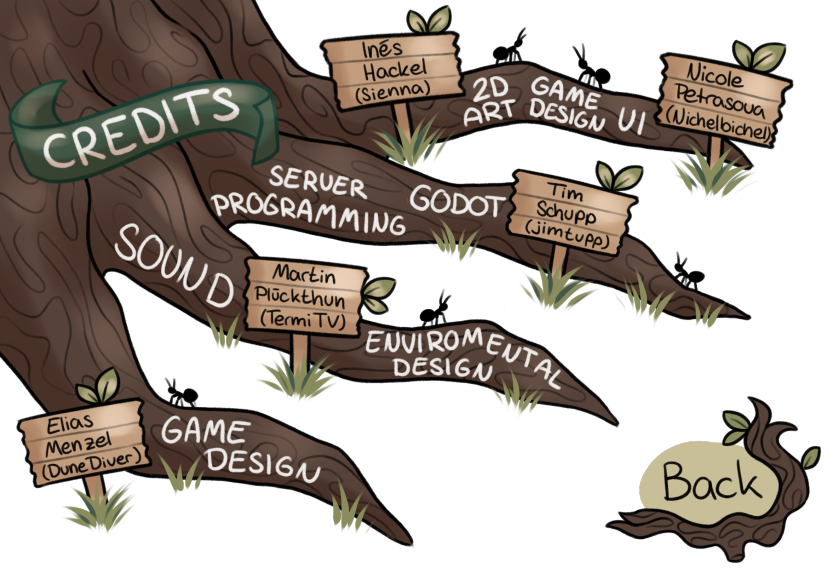 CREDITS
Inés
Hackel
(Sienna)
2D
ART
GAME
DESIGN
UI
Nicole
Petrasova
(Nichelbichel)
SERVER
PROGRAMMING
GODOT
Tim
Schupp
(jimtupp)
SOUND
Martin
Plückthun
(TermiTV)
ENVIROMENTAL
DESIGN
Elias
Menzel
(DuneDiver)
GAME
DESIGN
Back